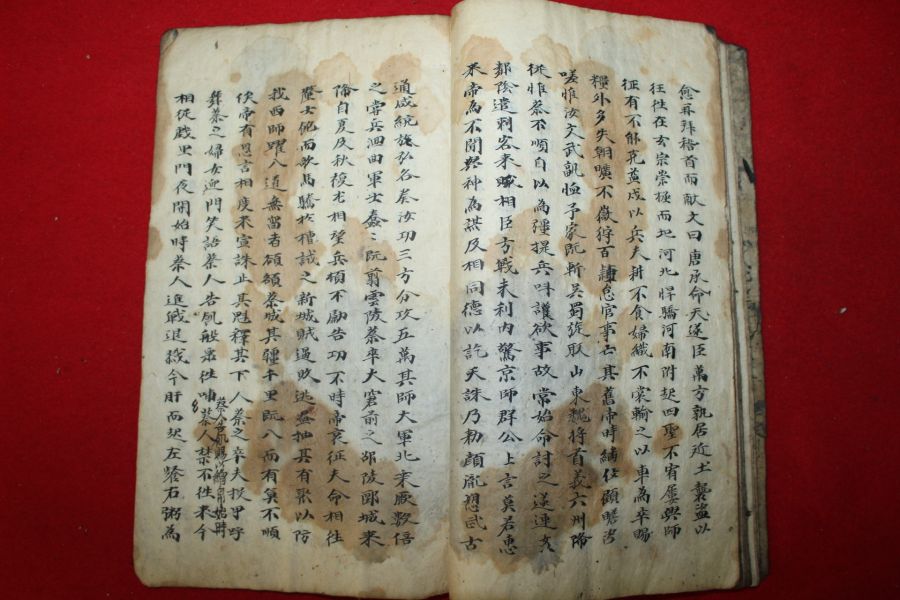 愈再拜稽首而献文曰唐承命天遂臣萬方孰居近土襲盜以
狂往在玄宗崇極而圮河北悍驕河南附起四聖不宥屢興師
征有不能克益戍以兵夫耕不食婦織不裳輸之以車為卒賜
糧外多失朝曠不嶽狩百隸怠官事亡其舊帝時継位顧瞻咨
嗟惟汝文武孰恤予家既斬吳蜀旋取山東魏将首義六州降
從惟蔡不順自以為彊提兵呌讙欲事故常始命討之遂連姦
鄰陰遣刺客来賊相臣方戰未利內驚京師群公上言莫若惠
来帝為不聞與神為謀及相同德以訖天誅乃勑顔胤愬武古
通咸統於弘各奏汝功三方分攻五萬其師大軍北乘厥數倍
之甞兵洄曲軍士蠢〻既翦雲陵蔡卒大窘前之邵陵郾城来
降自夏及秋復屯相望兵頓不勵告功不時帝哀征夫命相往
釐士飽而歌馬騰於槽試之新城賊遇敗逃盡抽其有聚以防
我西師躍入道無留者頟頟蔡城其疆千里既入而有莫不順
俟帝有恩言相度来宣誅止其魁釋其下人蔡之卒夫投甲呼
舞蔡之婦女迎門笑語蔡人告飢船粟往哺蔡人禁不往来今
蔡人告飢賜以繒布始時
相從戲里門夜開始時蔡人進戰退戮今旰而起左飱右粥為